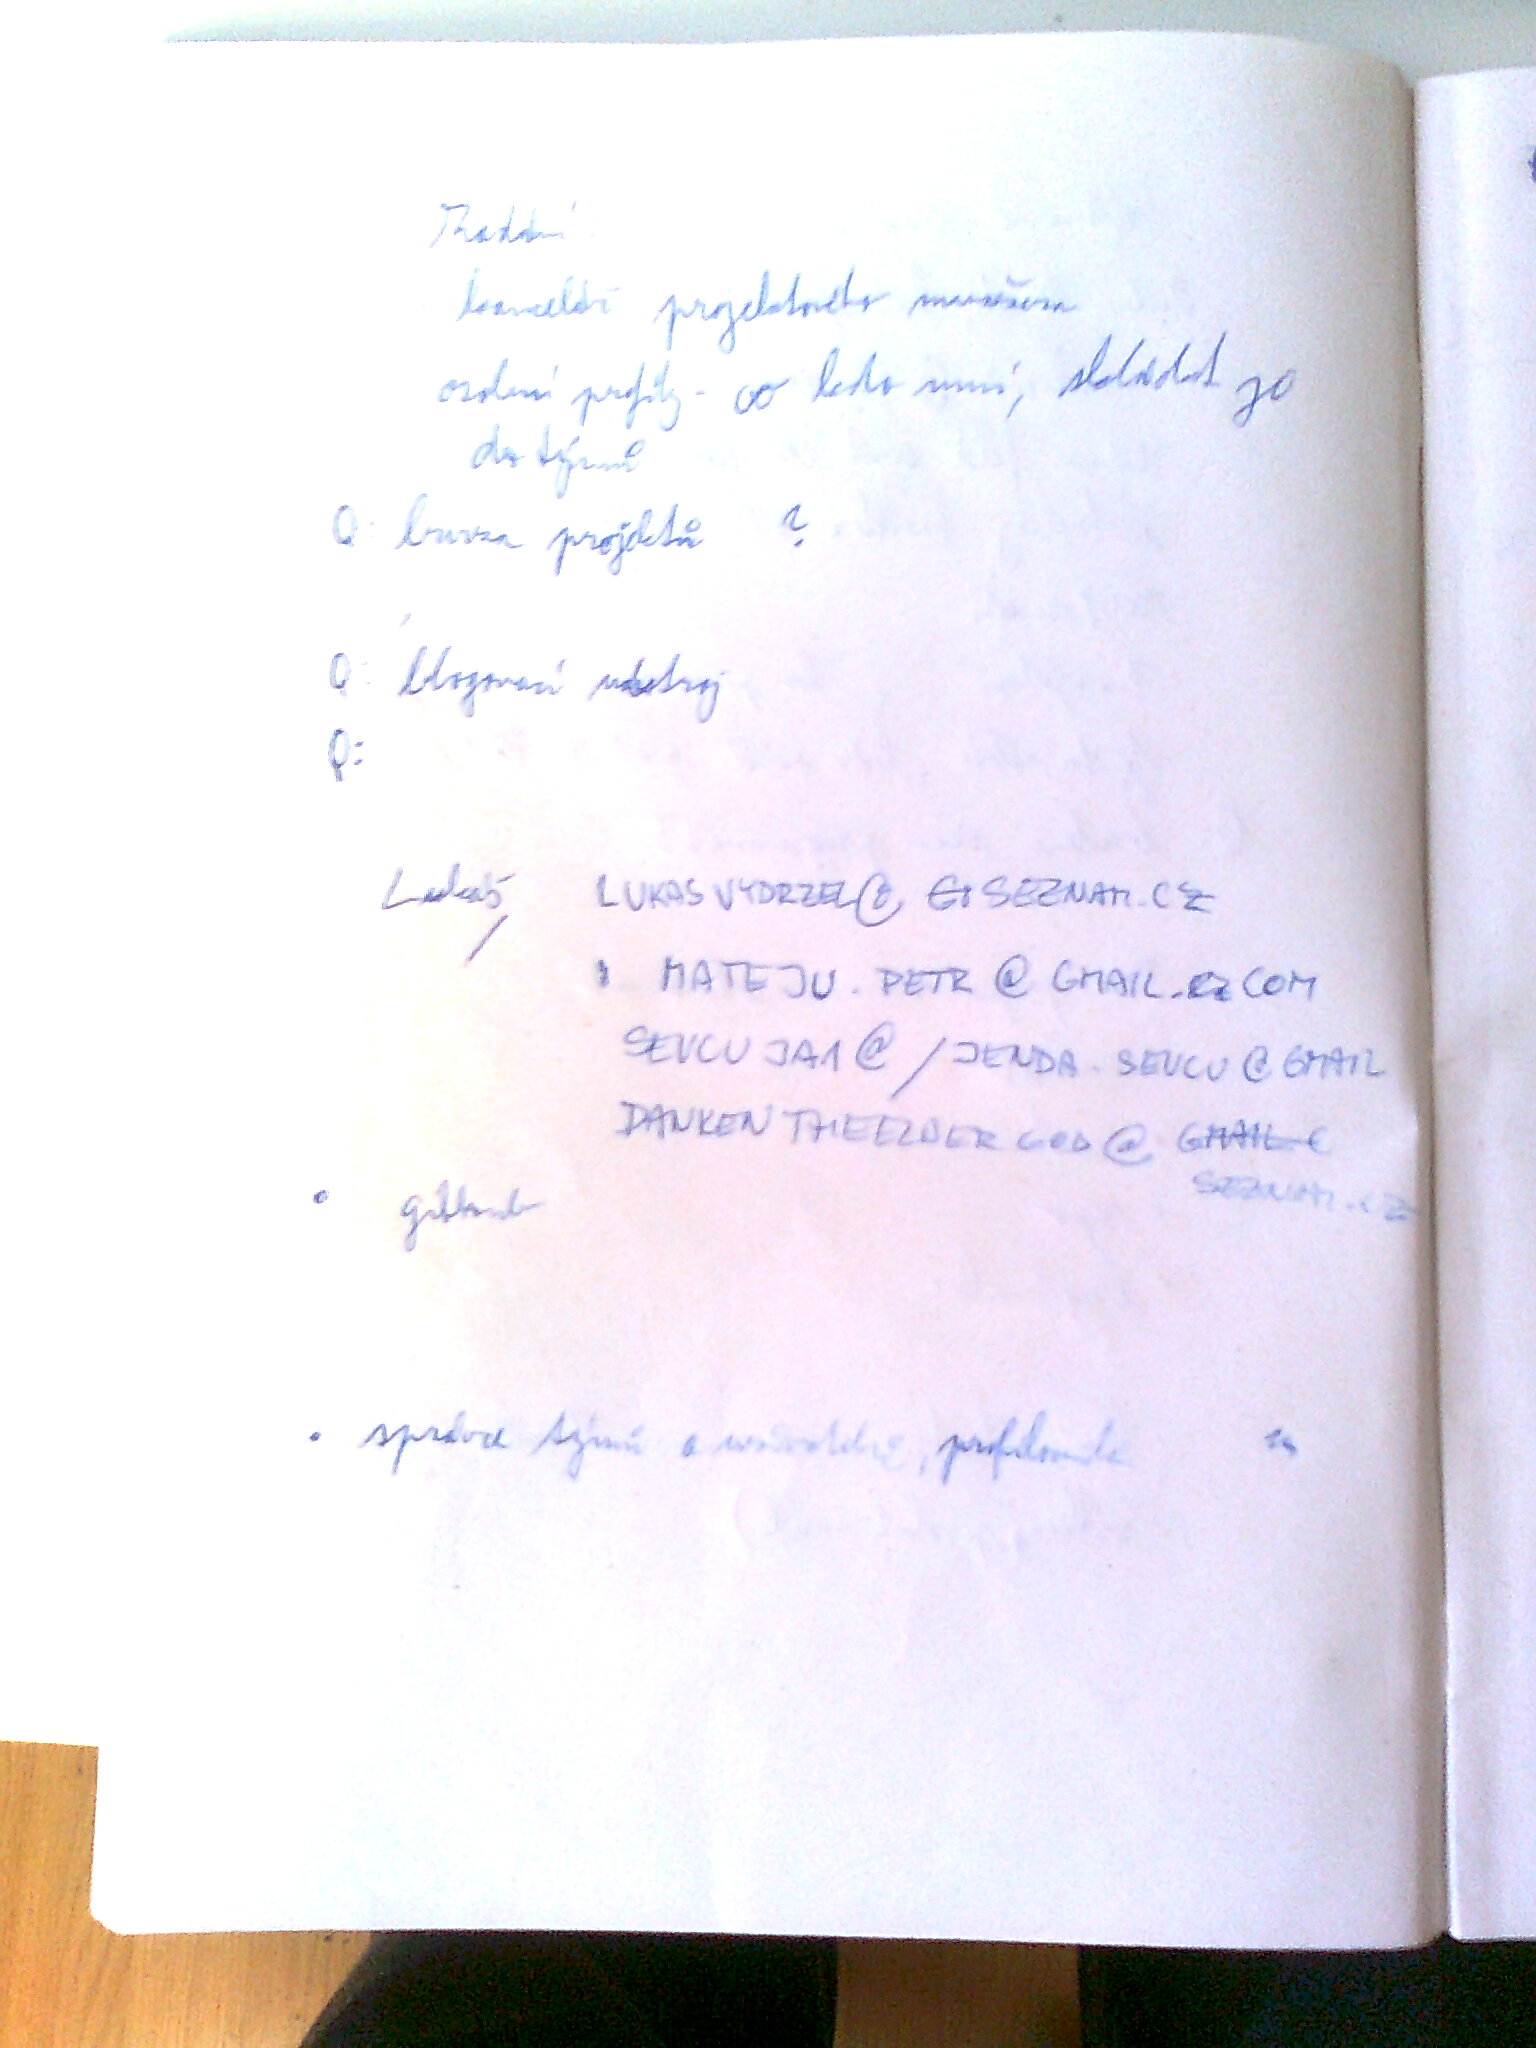 Zadání
kancelář projektového manažera
osobní profily - co kdo umí, skládat jo
do týmů
Q: burza projektů ?
Q: blogovací nástroj
Q:
Lukáš LUKASVYDRZEL@ SEZNAM.CZ
MATEJU.PETR@GMAIL.COM
SEVCUJA1@ / JENDA.SEVCU@GMAIL
@ GMAIL.C
SEZNAM.CZ
• github
• správce týmů a